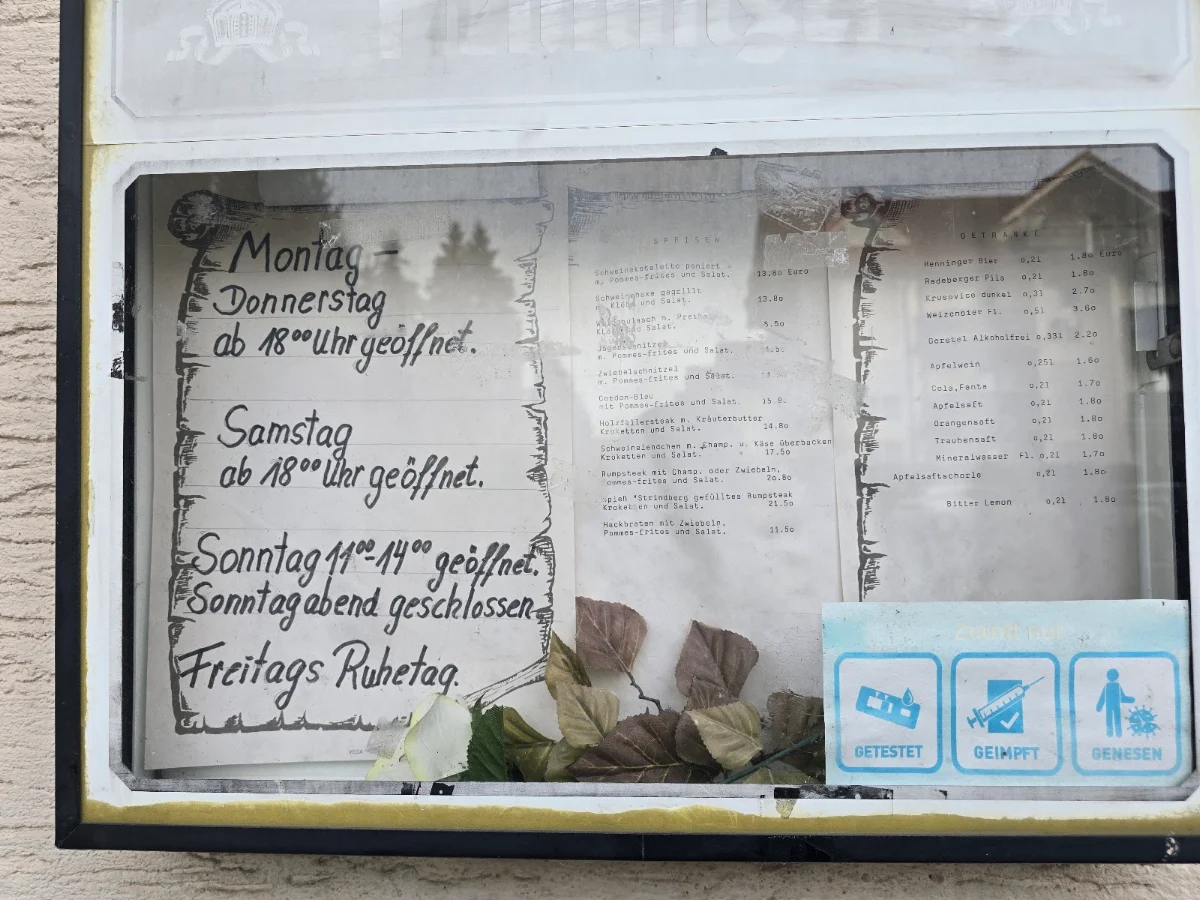 Montag -
Donnerstag
ab 18⁰⁰ Uhr geöffnet.
Samstag
ab 18⁰⁰ Uhr geöffnet.
Sonntag 11⁰⁰-14⁰⁰ geöffnet.
Sonntagabend geschlossen
Freitags Ruhetag.
SPEISEN
Schweinekotelette paniert
m. Pommes-frites und Salat. 13.80 Euro
Schweinehaxe gegrillt
Klöße und Salat. 13.80
m. Preiselb
und Salat.
Jägerschnitzel
m. Pommes-frites und Salat.
Zwiebelschnitzel
m. Pommes-frites und Salat.
Cordon-Bleu
mit Pommes-frites und Salat. 15.80
Holzfällersteak m. Kräuterbutter
Kroketten und Salat. 14.80
Schweinelendchen m. Champ. u. Käse überbacken
Kroketten und Salat. 17.50
Rumpsteak mit Champ. oder Zwiebeln,
Pommes-frites und Salat. 20.80
"Strindberg gefülltes Rumpsteak
Kroketten und Salat. 21.50
Hackbraten mit Zwiebeln,
Pommes-frites und Salat. 11.50
GETRÄNKE
Henninger Bier 0,2l 1.80 Euro
Radeberger Pils 0,2l 1.80
Krusovice dunkel 0,3l 2.70
Weizenbier Fl. 0,5l 3.60
Gerstel Alkoholfrei 0,33l 2.20
Apfelwein 0,25l 1.60
Cola,Fanta 0,2l 1.70
Apfelsaft 0,2l 1.80
Orangensaft 0,2l 1.80
Traubensaft 0,2l 1.80
Mineralwasser Fl. 0,2l 1.70
Apfelsaftschorle 0,2l 1.80
Bitter Lemon 0,2l 1.80
GETESTET
GEIMPFT
GENESEN